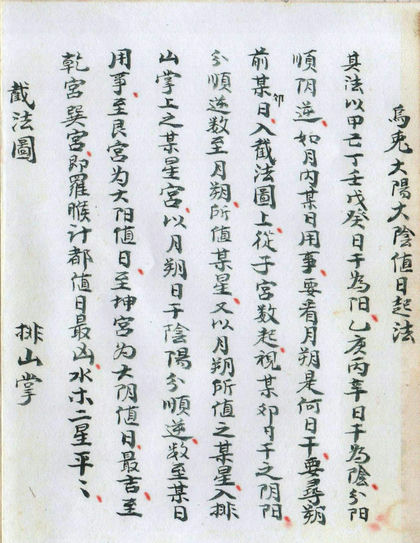 烏兎大陽大陰值日起法
其法以甲己丁壬戊癸日干為陽乙庚丙辛日干為陰分陽
順阴逆如月內某日用事要看月朔是何日干要尋朔
前某卯日入截法圖上從子宮数起視某卯日干之阴阳
分順逆数至月朔所值某星又以月朔所值之某星入排
山掌上之某星宮以月朔日干陰陽分順逆数至某日
用事至艮宮为大阳值日至坤宮为大阴值日最吉至
乾宮巽宮即羅睺計都值日最凶水木二星平〻
截法圖 排山掌